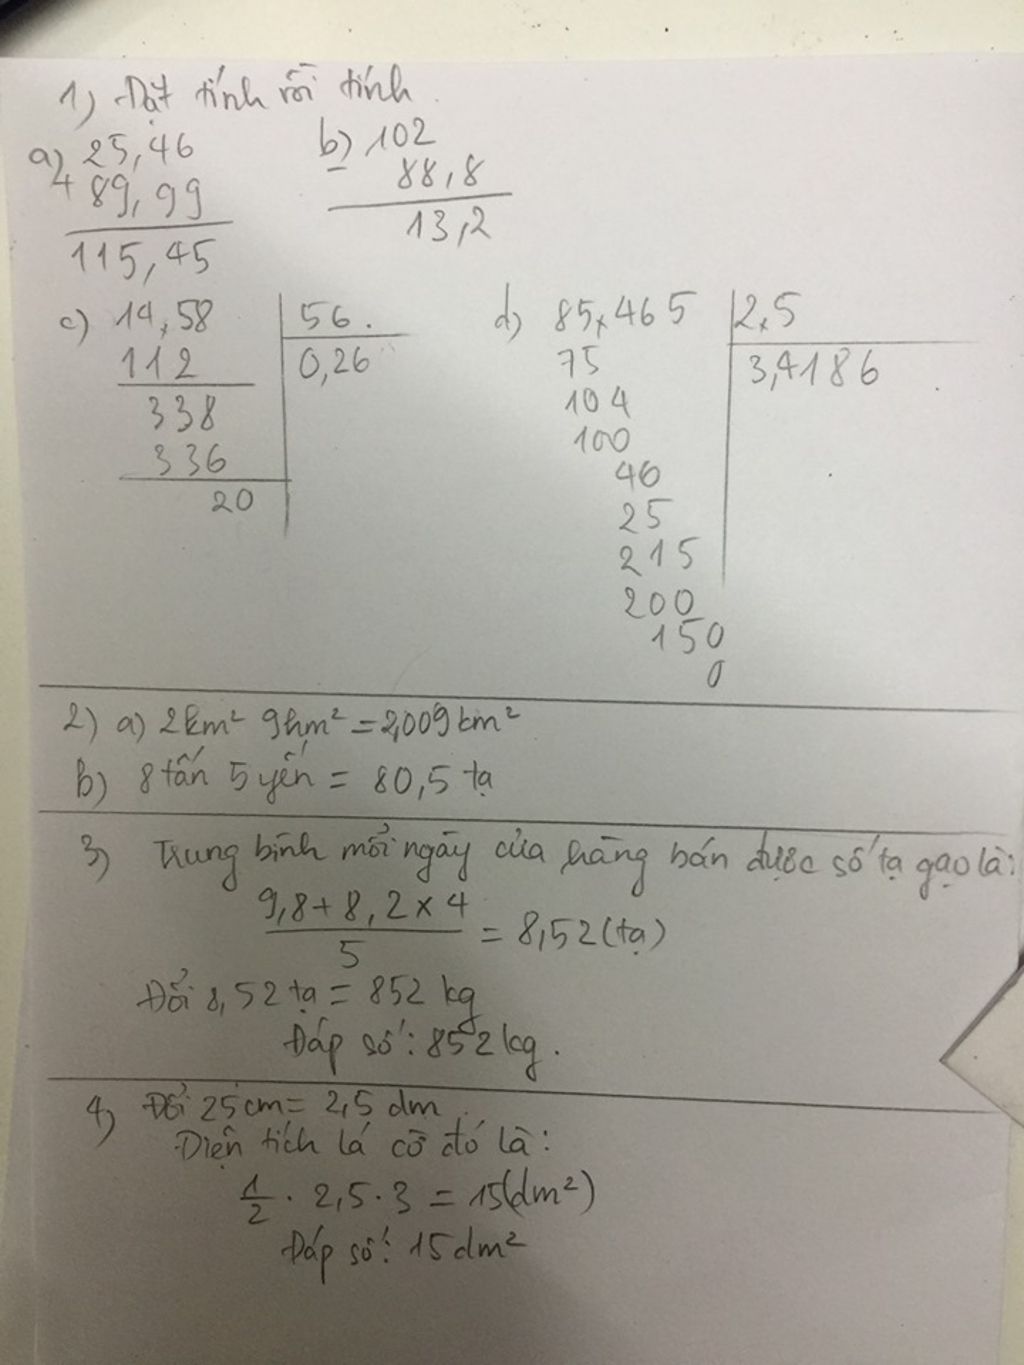 1) Đặt tính rồi tính.
a) 25,46
+ 89,99
115,45
b) 102
- 88,8
13,2
c) 14,58 | 56.
112 | 0,26
338
336
20
d) 85,465 | 2,5
75 | 3,4186
104
100
46
25
215
200
150
0
2) a) 2km² 9hm² = 2,009km²
b) 8 tấn 5 yến = 80,5 tạ
3) Trung bình mỗi ngày cửa hàng bán được số tạ gạo là:
9,8 + 8,2 x 4
5
= 8,52 (tạ)
Đổi 8,52 tạ = 852 kg
Đáp số: 852 kg.
4) Đổi 25cm = 2,5 dm
Diện tích lá cờ đó là:
1/2 . 2,5 . 3 = 15(dm²)
Đáp số: 15dm²